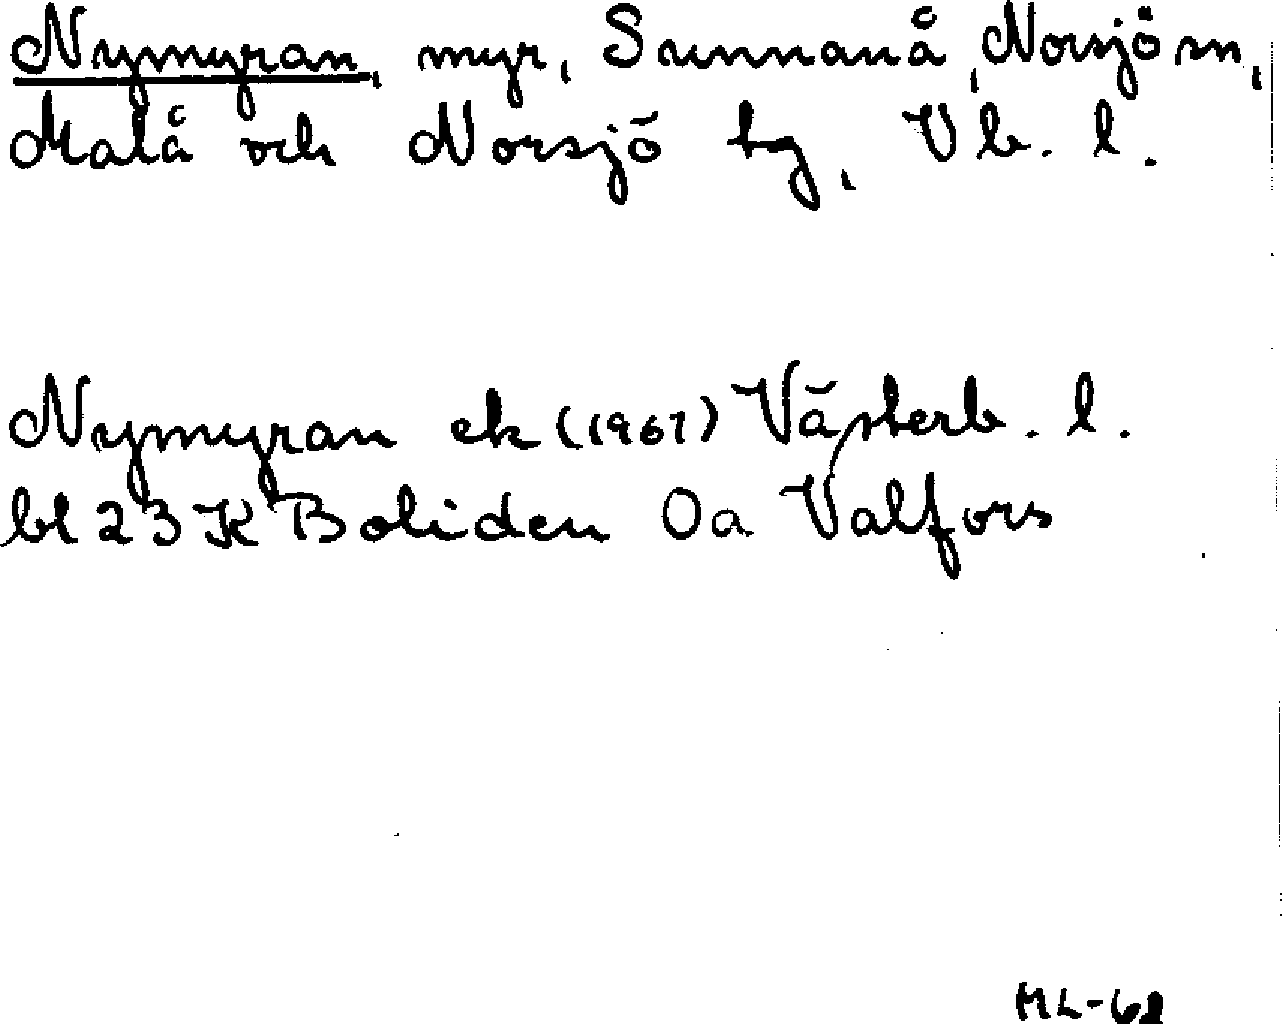 Nymyran, myr, Sunnanå, Norsjö sn,
Malå och Norsjö tg, Vb. l.
Nymyran ek (1967) Västerb. l.
bl 23 K Boliden 0a Valfors